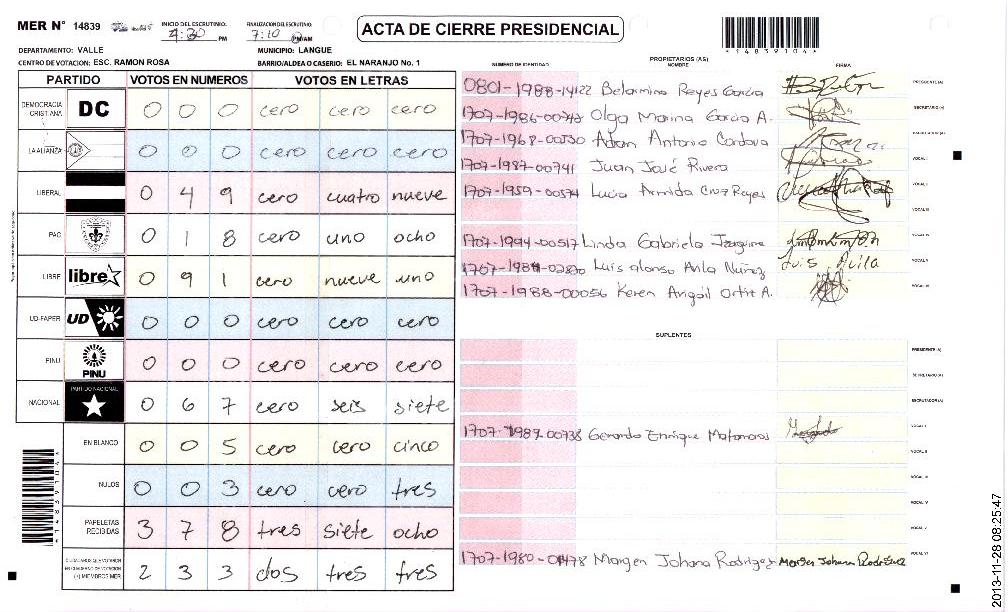 MER N° 14839
INICIO DEL ESCRUTINIO: 4:30 PM
FINALIZACION DEL ESCRUTINIO: 7:10 PM/AM
ACTA DE CIERRE PRESIDENCIAL
*14839104*
DEPARTAMENTO: VALLE
MUNICIPIO: LANGUE
CENTRO DE VOTACION: ESC. RAMON ROSA
BARRIO/ALDEA O CASERIO: EL NARANJO No. 1
PARTIDO VOTOS EN NUMEROS VOTOS EN LETRAS
DEMOCRACIA CRISTIANA DC 0 0 0 cero cero cero
LA ALIANZA 0 0 0 cero cero cero
LIBERAL 0 4 9 cero cuatro nueve
PAC 0 1 8 cero uno ocho
LIBRE libre 0 9 1 cero nueve uno
UD-FAPER UD 0 0 0 cero cero cero
PINU PINU 0 0 0 cero cero cero
NACIONAL PARTIDO NACIONAL 0 6 7 cero seis siete
EN BLANCO 0 0 5 cero cero cinco
NULOS 0 0 3 cero cero tres
PAPELETAS RECIBIDAS 3 7 8 tres siete ocho
CIUDADANOS QUE VOTARON EN CUADERNO DE VOTACION (+) MIEMBROS MER 2 3 3 dos tres tres
NUMERO DE IDENTIDAD PROPIETARIOS (AS) NOMBRE FIRMA
0801-1988-14122 Belarmino Reyes Garcia PRESIDENTE (A)
Olga Marina Garcia A. SECRETARIO (A)
1707-1968-00330 Adan Antonio Cordova
1707-1987-00741 Juan José Rivera VOCAL I
1707-1959-00574 Lucia Armida Cruz Reyes VOCAL II
VOCAL III
1707-1994-00517 Linda Gabriela VOCAL IV
Luis alonso Avila Nuñez Luis Avila VOCAL V
1707-1988-00056 Keren Avigail Ortiz A. VOCAL VI
SUPLENTES
PRESIDENTE (A)
SECRETARIO (A)
ESCRUTADOR (A)
1707-1987-00738 Gerardo Enrique Matamoros VOCAL I
VOCAL II
VOCAL III
VOCAL IV
VOCAL V
Johana Rodriguez Johana Rodriguez VOCAL VI
2013-11-28 08:25:47